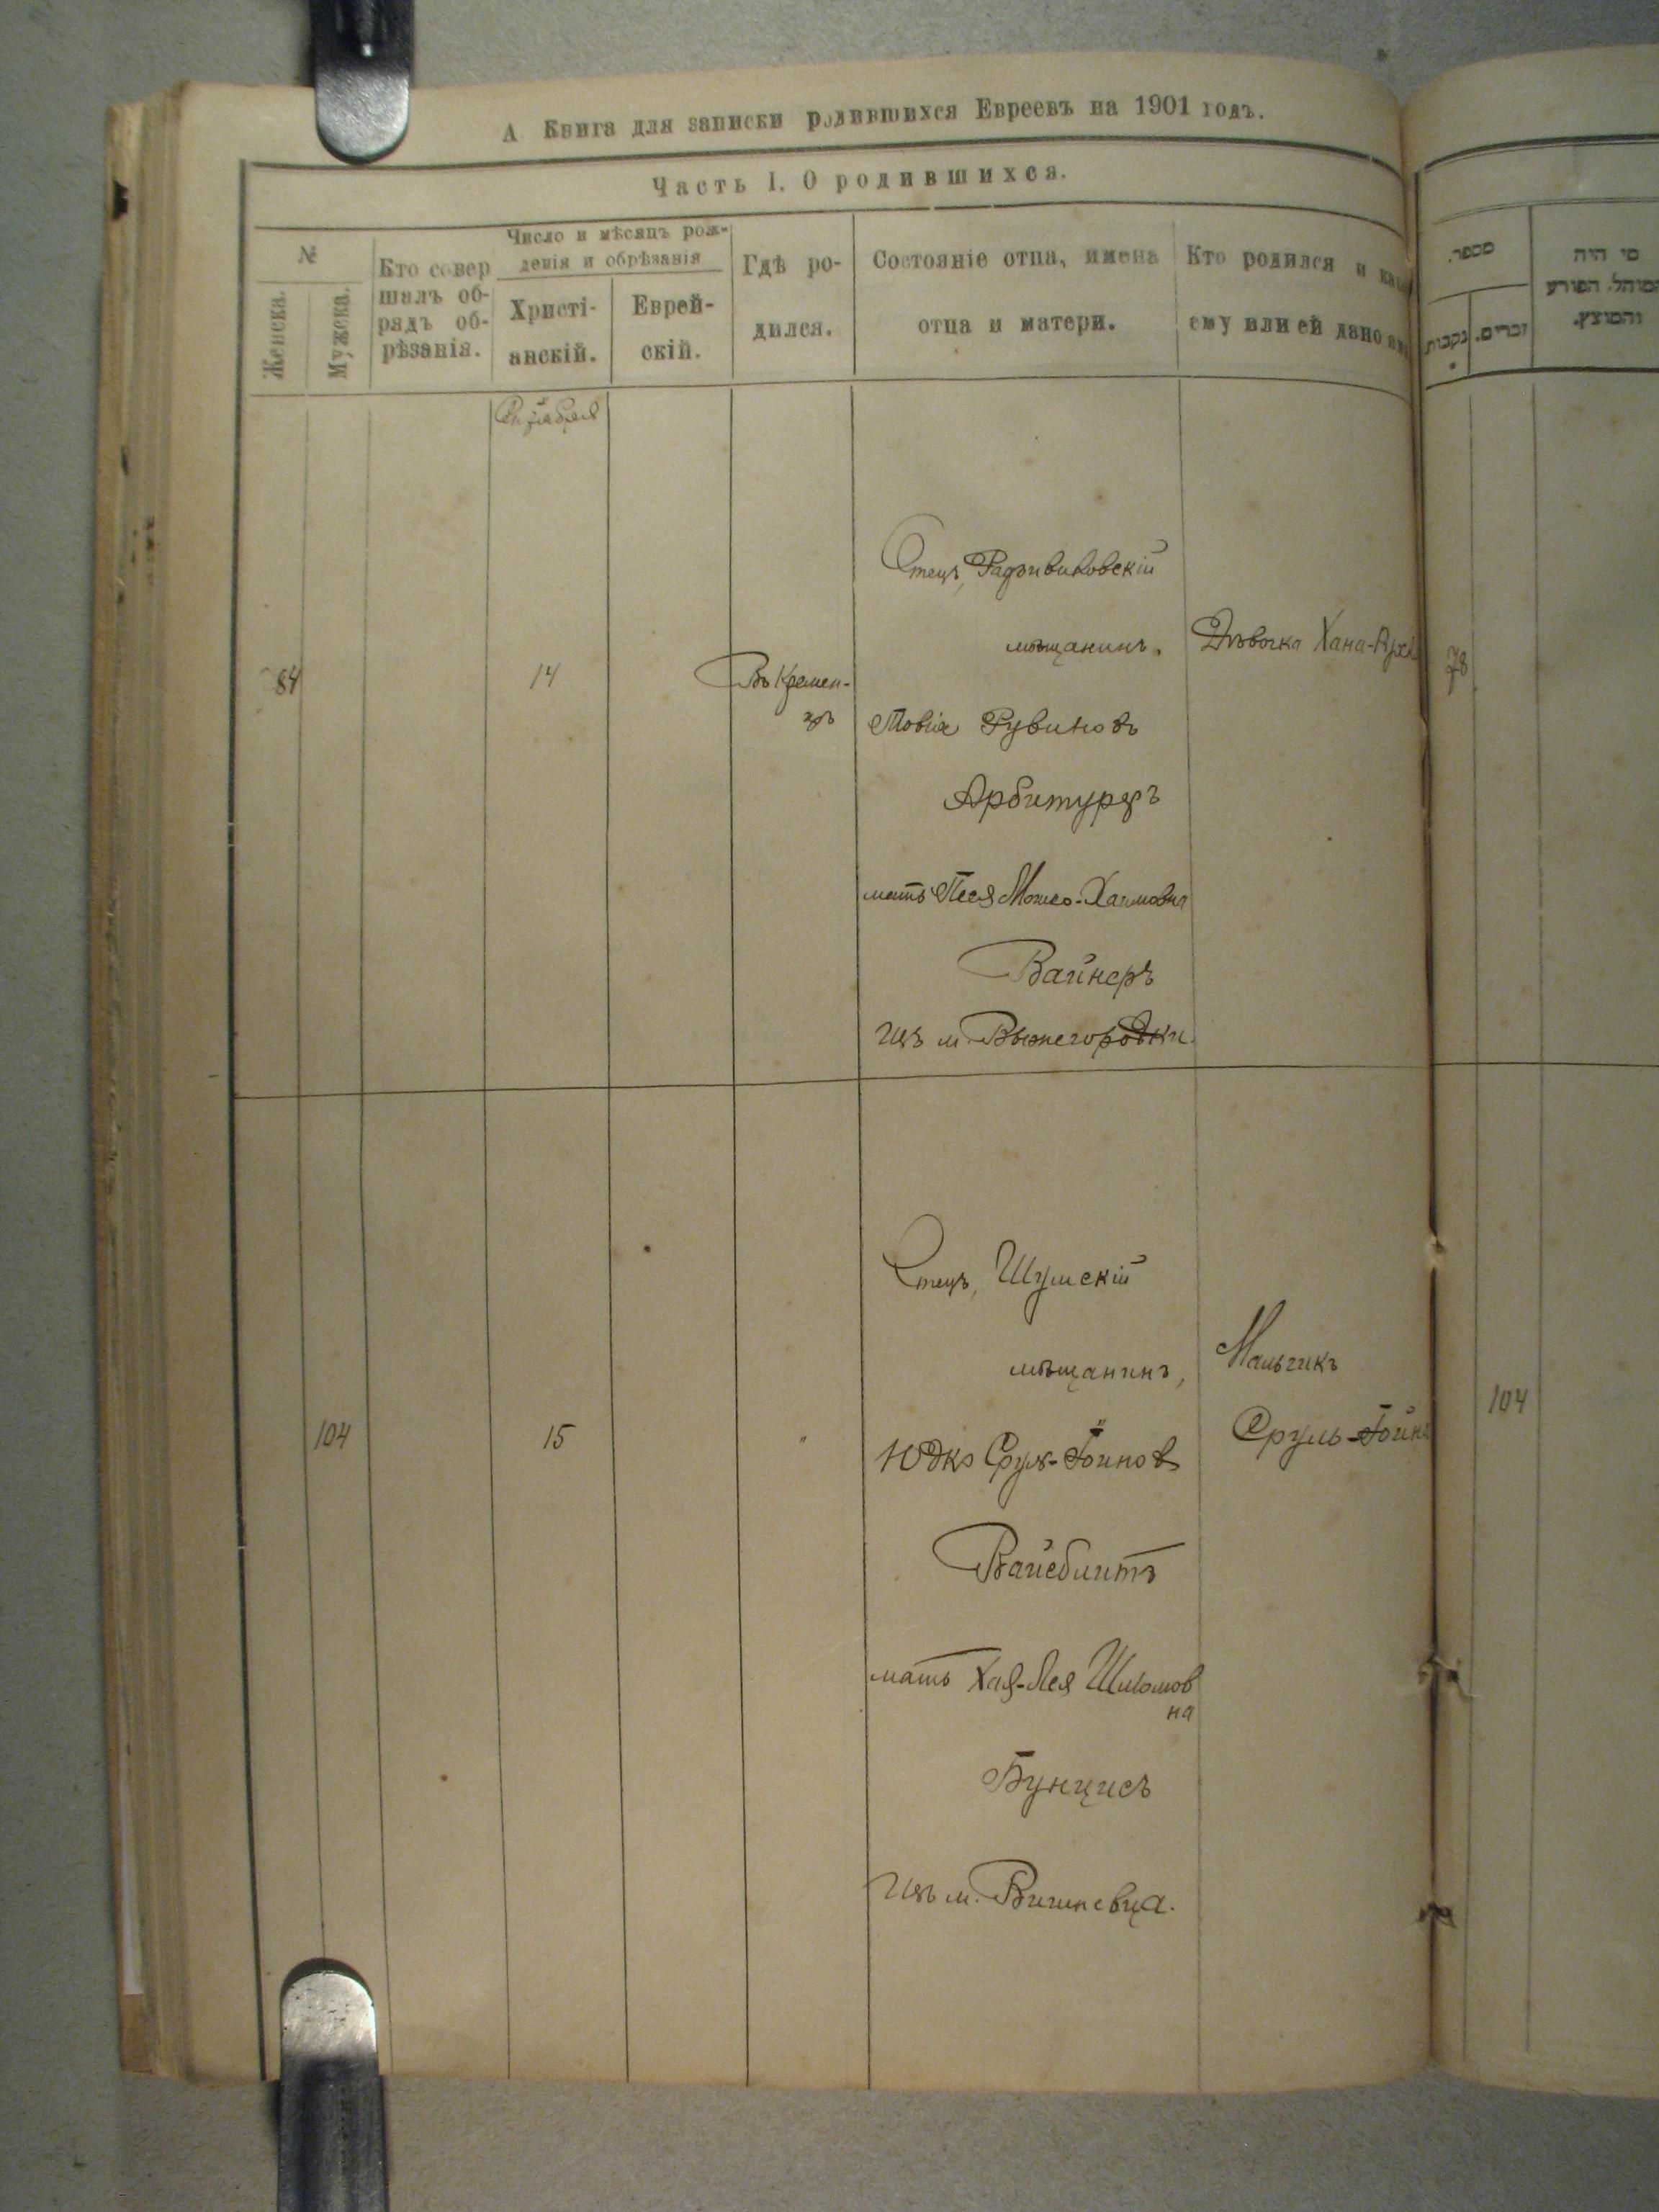 А Книга для записки родившихся Евреевъ на 1901 годъ.
Часть I. О родившихся.
№
Женска.
Мужска.
Кто совер
шалъ об-
рядъ об-
рѣзанія.
Число и мѣсяцъ рож-
денія и обрѣзанія
Христі-
анскій.
Еврей-
скій.
Гдѣ ро-
дился.
Состояніе отца, имена
отца и матери.
Кто родился и
ему или ей дано
מספר.
נקבות
זכרים.
מי היה
המוהל, הפורע
והמוצץ.
84
14
Въ Кремен-
цѣ
Отецъ, Радзивиловскій
мѣщанинъ,
Товія Рувиновъ
Арбитуреръ
мать Песя Мошко-Хаимовна
Вайнеръ
изъ м. Вышегородки.
Дѣвочка Хана-
78
104
15
"
Отецъ, Шумскій
мѣщанинъ,
Юдко Сруль-Іойнов
Вайсблитъ
мать Хая-Лея Шліомов
на
Бунцисъ
Изъ м. Вишневца.
Мальчикъ
Сруль-Іойна
104